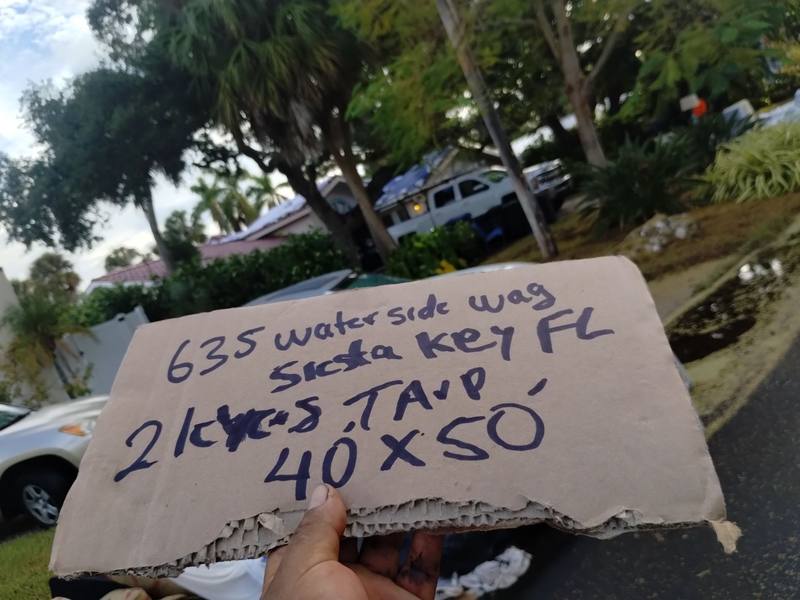 635 water side way
Siesta Key FL
2 TARP
40' x 50'